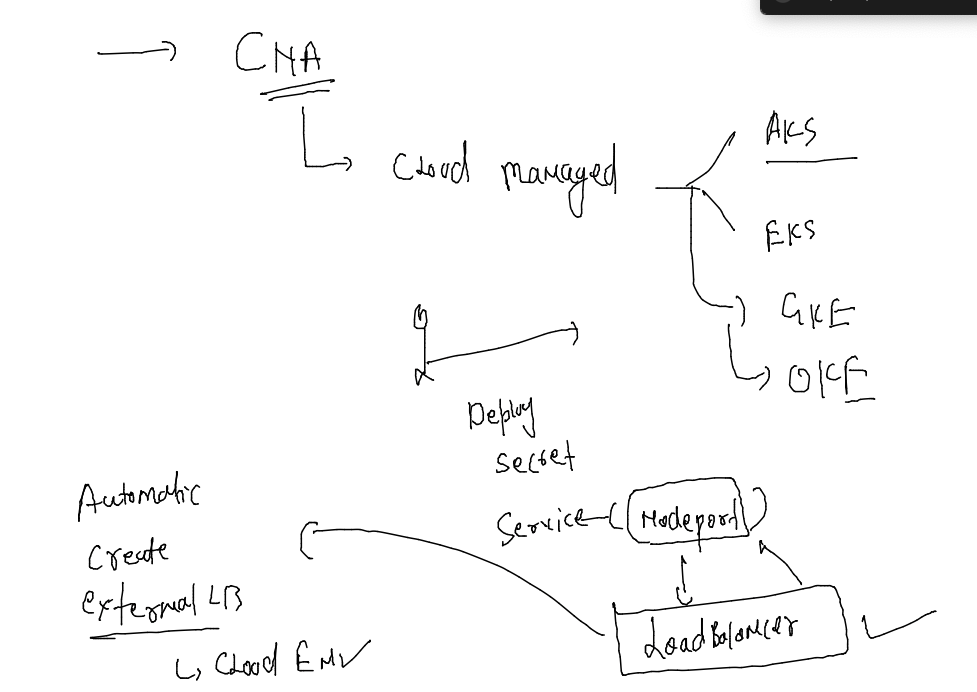 CNA
Cloud managed
AKS
EKS
GKE
OKE
Deploy
secret
Service
Nodeport
LoadBalancer
Automatic
Create
external LB
Cloud Env